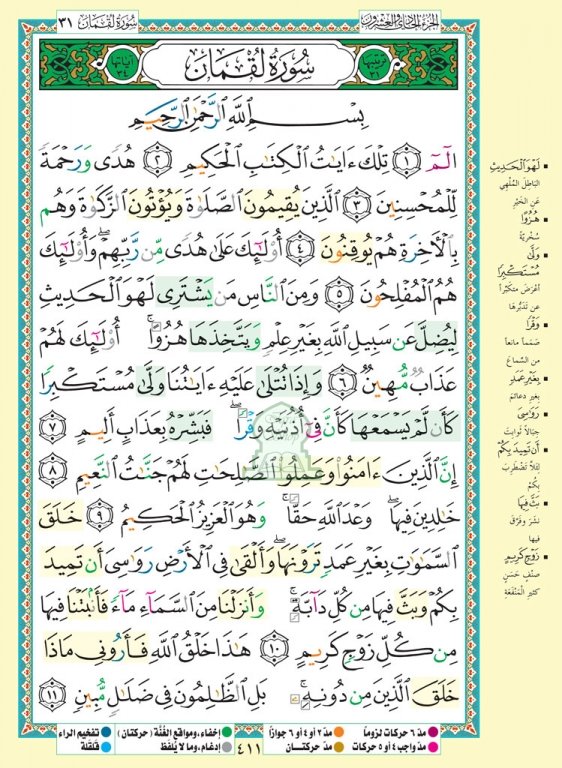 الجزء الحادي والعشرون
سُورَةُ لُقْمَان ٣١
ترتيبها ٣١
سُورَةُ لُقْمَان
آياتها ٣٤
بِسْمِ اللَّهِ الرَّحْمَٰنِ الرَّحِيمِ
الٓمٓ ١ تِلْكَ ءَايَٰتُ الْكِتَٰبِ الْحَكِيمِ ٢ هُدًى وَرَحْمَةً
لِّلْمُحْسِنِينَ ٣ الَّذِينَ يُقِيمُونَ الصَّلَوٰةَ وَيُؤْتُونَ الزَّكَوٰةَ وَهُم
بِالْءَاخِرَةِ هُمْ يُوقِنُونَ ٤ أُو۟لَٰٓئِكَ عَلَىٰ هُدًى مِّن رَّبِّهِمْ ۖ وَأُو۟لَٰٓئِكَ
هُمُ الْمُفْلِحُونَ ٥ وَمِنَ النَّاسِ مَن يَشْتَرِى لَهْوَ الْحَدِيثِ
لِيُضِلَّ عَن سَبِيلِ اللَّهِ بِغَيْرِ عِلْمٍ وَيَتَّخِذَهَا هُزُوًا ۚ أُو۟لَٰٓئِكَ لَهُمْ
عَذَابٌ مُّهِينٌ ٦ وَإِذَا تُتْلَىٰ عَلَيْهِ ءَايَٰتُنَا وَلَّىٰ مُسْتَكْبِرًا
كَأَن لَّمْ يَسْمَعْهَا كَأَنَّ فِىٓ أُذُنَيْهِ وَقْرًا ۖ فَبَشِّرْهُ بِعَذَابٍ أَلِيمٍ ٧
إِنَّ الَّذِينَ ءَامَنُوا۟ وَعَمِلُوا۟ الصَّٰلِحَٰتِ لَهُمْ جَنَّٰتُ النَّعِيمِ ٨
خَٰلِدِينَ فِيهَا ۖ وَعْدَ اللَّهِ حَقًّا ۚ وَهُوَ الْعَزِيزُ الْحَكِيمُ ٩ خَلَقَ
السَّمَٰوَٰتِ بِغَيْرِ عَمَدٍ تَرَوْنَهَا ۖ وَأَلْقَىٰ فِى الْأَرْضِ رَوَٰسِىَ أَن تَمِيدَ
بِكُمْ وَبَثَّ فِيهَا مِن كُلِّ دَآبَّةٍ ۚ وَأَنزَلْنَا مِنَ السَّمَآءِ مَآءً فَأَنۢبَتْنَا فِيهَا
مِن كُلِّ زَوْجٍ كَرِيمٍ ١٠ هَٰذَا خَلْقُ اللَّهِ فَأَرُونِى مَاذَا
خَلَقَ الَّذِينَ مِن دُونِهِۦ ۚ بَلِ الظَّٰلِمُونَ فِى ضَلَٰلٍ مُّبِينٍ ١١
لَهْوَ الْحَدِيثِ
الباطل المُلْهِي
عن الخير
هُزُوًا
سُخْرِيَّة
وَلَّىٰ
مُسْتَكْبِرًا
أعرض متكبّراً
عن تدبُّرها
وَقْرًا
صَمَماً مانعاً
من السَّماع
بِغَيْرِ عَمَدٍ
بغير دعائم
رَوَٰسِىَ
جبالاً ثوابت
أَن تَمِيدَ بِكُمْ
لئلا تضطرب
بكم
بَثَّ فِيهَا
نشر وفرّق
فيها
زَوْجٍ كَرِيمٍ
صنف حسن
كثير المنفعة
مدّ ٦ حركات لزوماً
مدّ ٢ أو ٤ أو ٦ جوازاً
إخفاء، ومواقع الغُنَّة (حركتان)
تفخيم الراء
مدّ واجب ٤ أو ٥ حركات
مدّ حركتان
إدغام، وما لا يُلفظ
قلقلة
٤١١